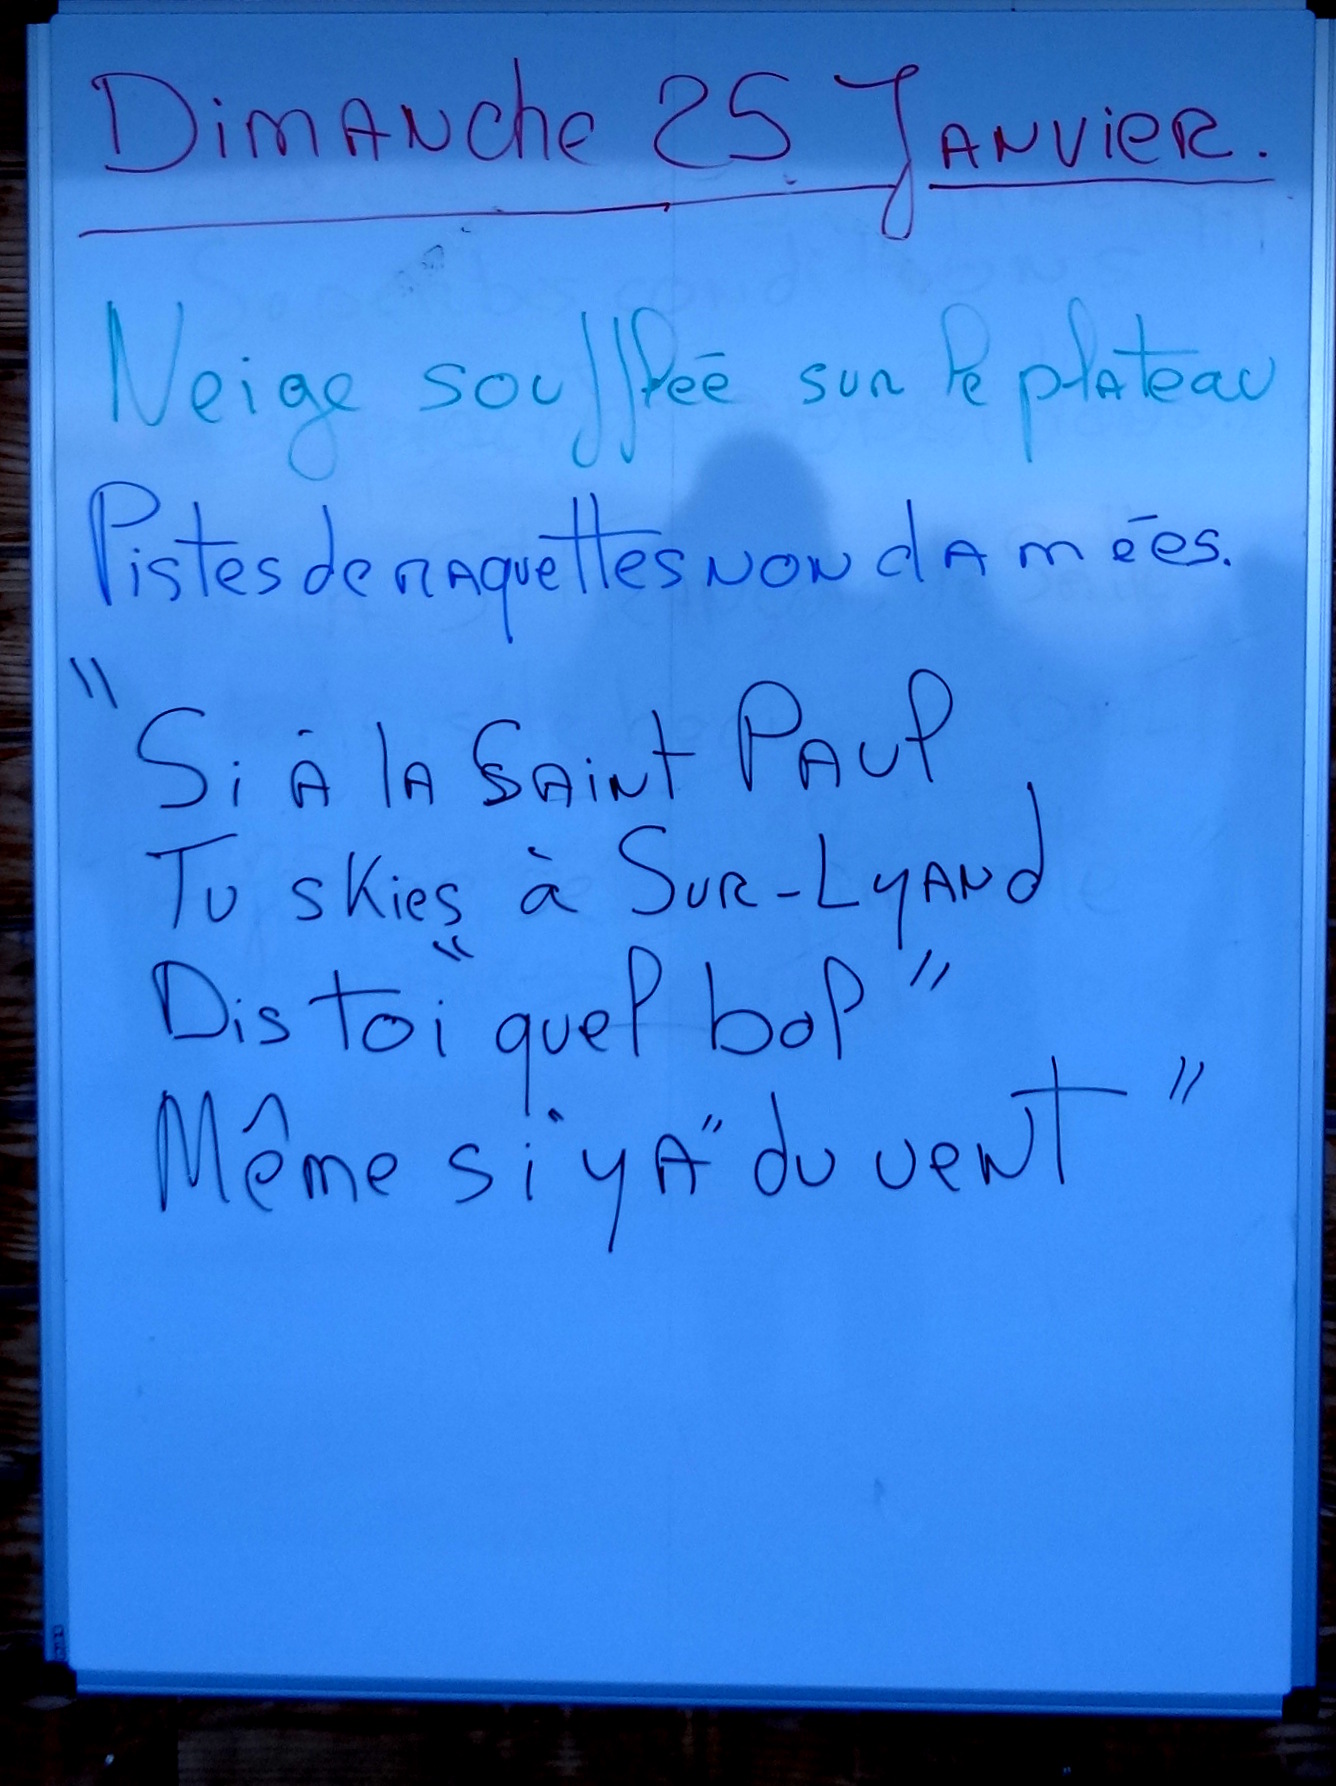 Dimanche 25 Janvier.
Neige soufflée sur le plateau
Pistes de raquettes non damées.
"Si à la Saint Paul
Tu skies à Sur-Lyand
Dis toi "quel bol"
Même si "y a" du vent"